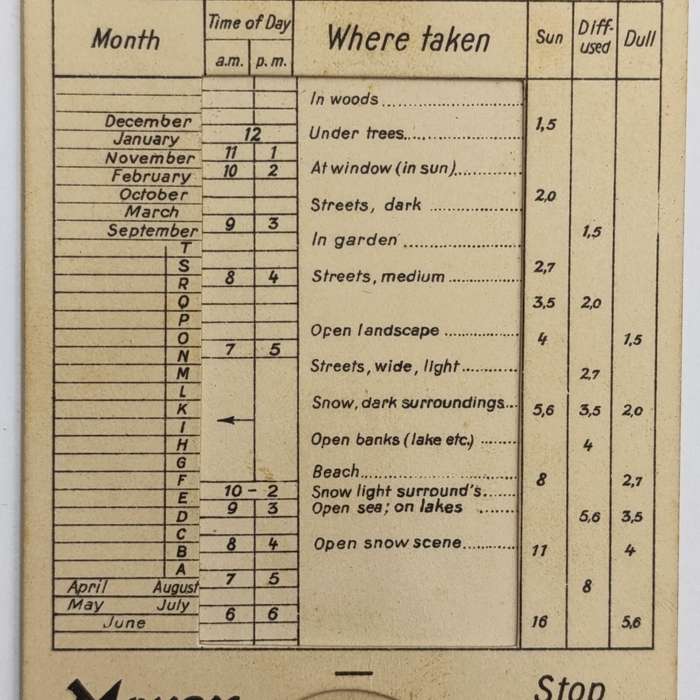 Month Time of Day Where taken Sun Diff-used Dull
a.m. p.m.
In woods
December 1,5
January 12 Under trees
November 11 1
February 10 2 At window (in sun)
October 2,0
March Streets, dark
September 9 3 1,5
T In garden
S 2,7
R 8 4 Streets, medium
Q 3,5 2,0
P
O Open landscape 4 1,5
N 7 5
M Streets, wide, light 2,7
L
K Snow, dark surroundings 5,6 3,5 2,0
I
H Open banks (lake etc.) 4
G
F Beach 8 2,7
E 10 - 2 Snow light surround's
D 9 3 Open sea; on lakes 5,6 3,5
C
B 8 4 Open snow scene 11 4
A
April August 7 5 8
May July
June 6 6 16 5,6
Stop